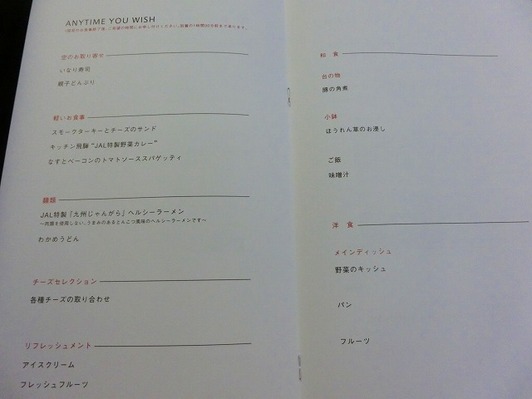 ANYTIME YOU WISH
空のお取り寄せ
いなり寿司
親子どんぶり
軽いお食事
スモークターキーとチーズのサンド
キッチン飛騨“JAL特製野菜カレー”
なすとベーコンのトマトソーススパゲッティ
麺類
JAL特製「九州じゃんがら」ヘルシーラーメン
～肉類を使用しない、うまみのあるとんこつ風味のヘルシーラーメンです～
わかめうどん
チーズセレクション
各種チーズの取り合わせ
リフレッシュメント
アイスクリーム
フレッシュフルーツ
和 食
台の物
豚の角煮
小鉢
ほうれん草のお浸し
ご飯
味噌汁
洋 食
メインディッシュ
野菜のキッシュ
パン
フルーツ